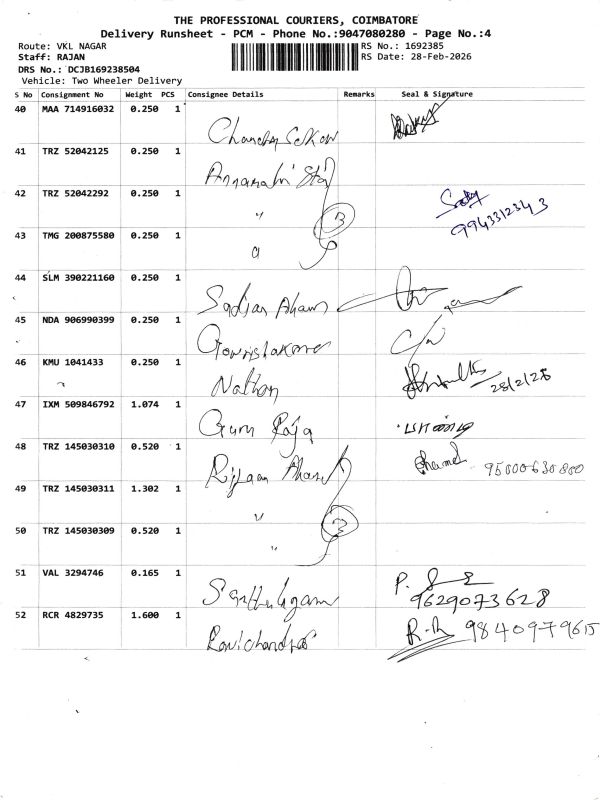 THE PROFESSIONAL COURIERS, COIMBATORE
Delivery Runsheet - PCM - Phone No.:9047080280 - Page No.:4
Route: VKL NAGAR RS No.: 1692385
Staff: RAJAN RS Date: 28-Feb-2026
DRS No.: DCJB169238504
Vehicle: Two Wheeler Delivery
S No Consignment No Weight PCS Consignee Details Remarks Seal & Signature
40 MAA 714916032 0.250 1
41 TRZ 52042125 0.250 1
42 TRZ 52042292 0.250 1 " 3
9943312343
43 TMG 200875580 0.250 1
44 SLM 390221160 0.250 1
45 NDA 906990399 0.250 1
46 KMU 1041433 0.250 1 Nathan 28/2/26
47 IXM 509846792 1.074 1 Guru Raja பாண்டி
48 TRZ 145030310 0.520 1
49 TRZ 145030311 1.302 1 " 3
50 TRZ 145030309 0.520 1 "
51 VAL 3294746 0.165 1 P.
9629073628
52 RCR 4829735 1.600 1 Ravichandran R.R 9840979615